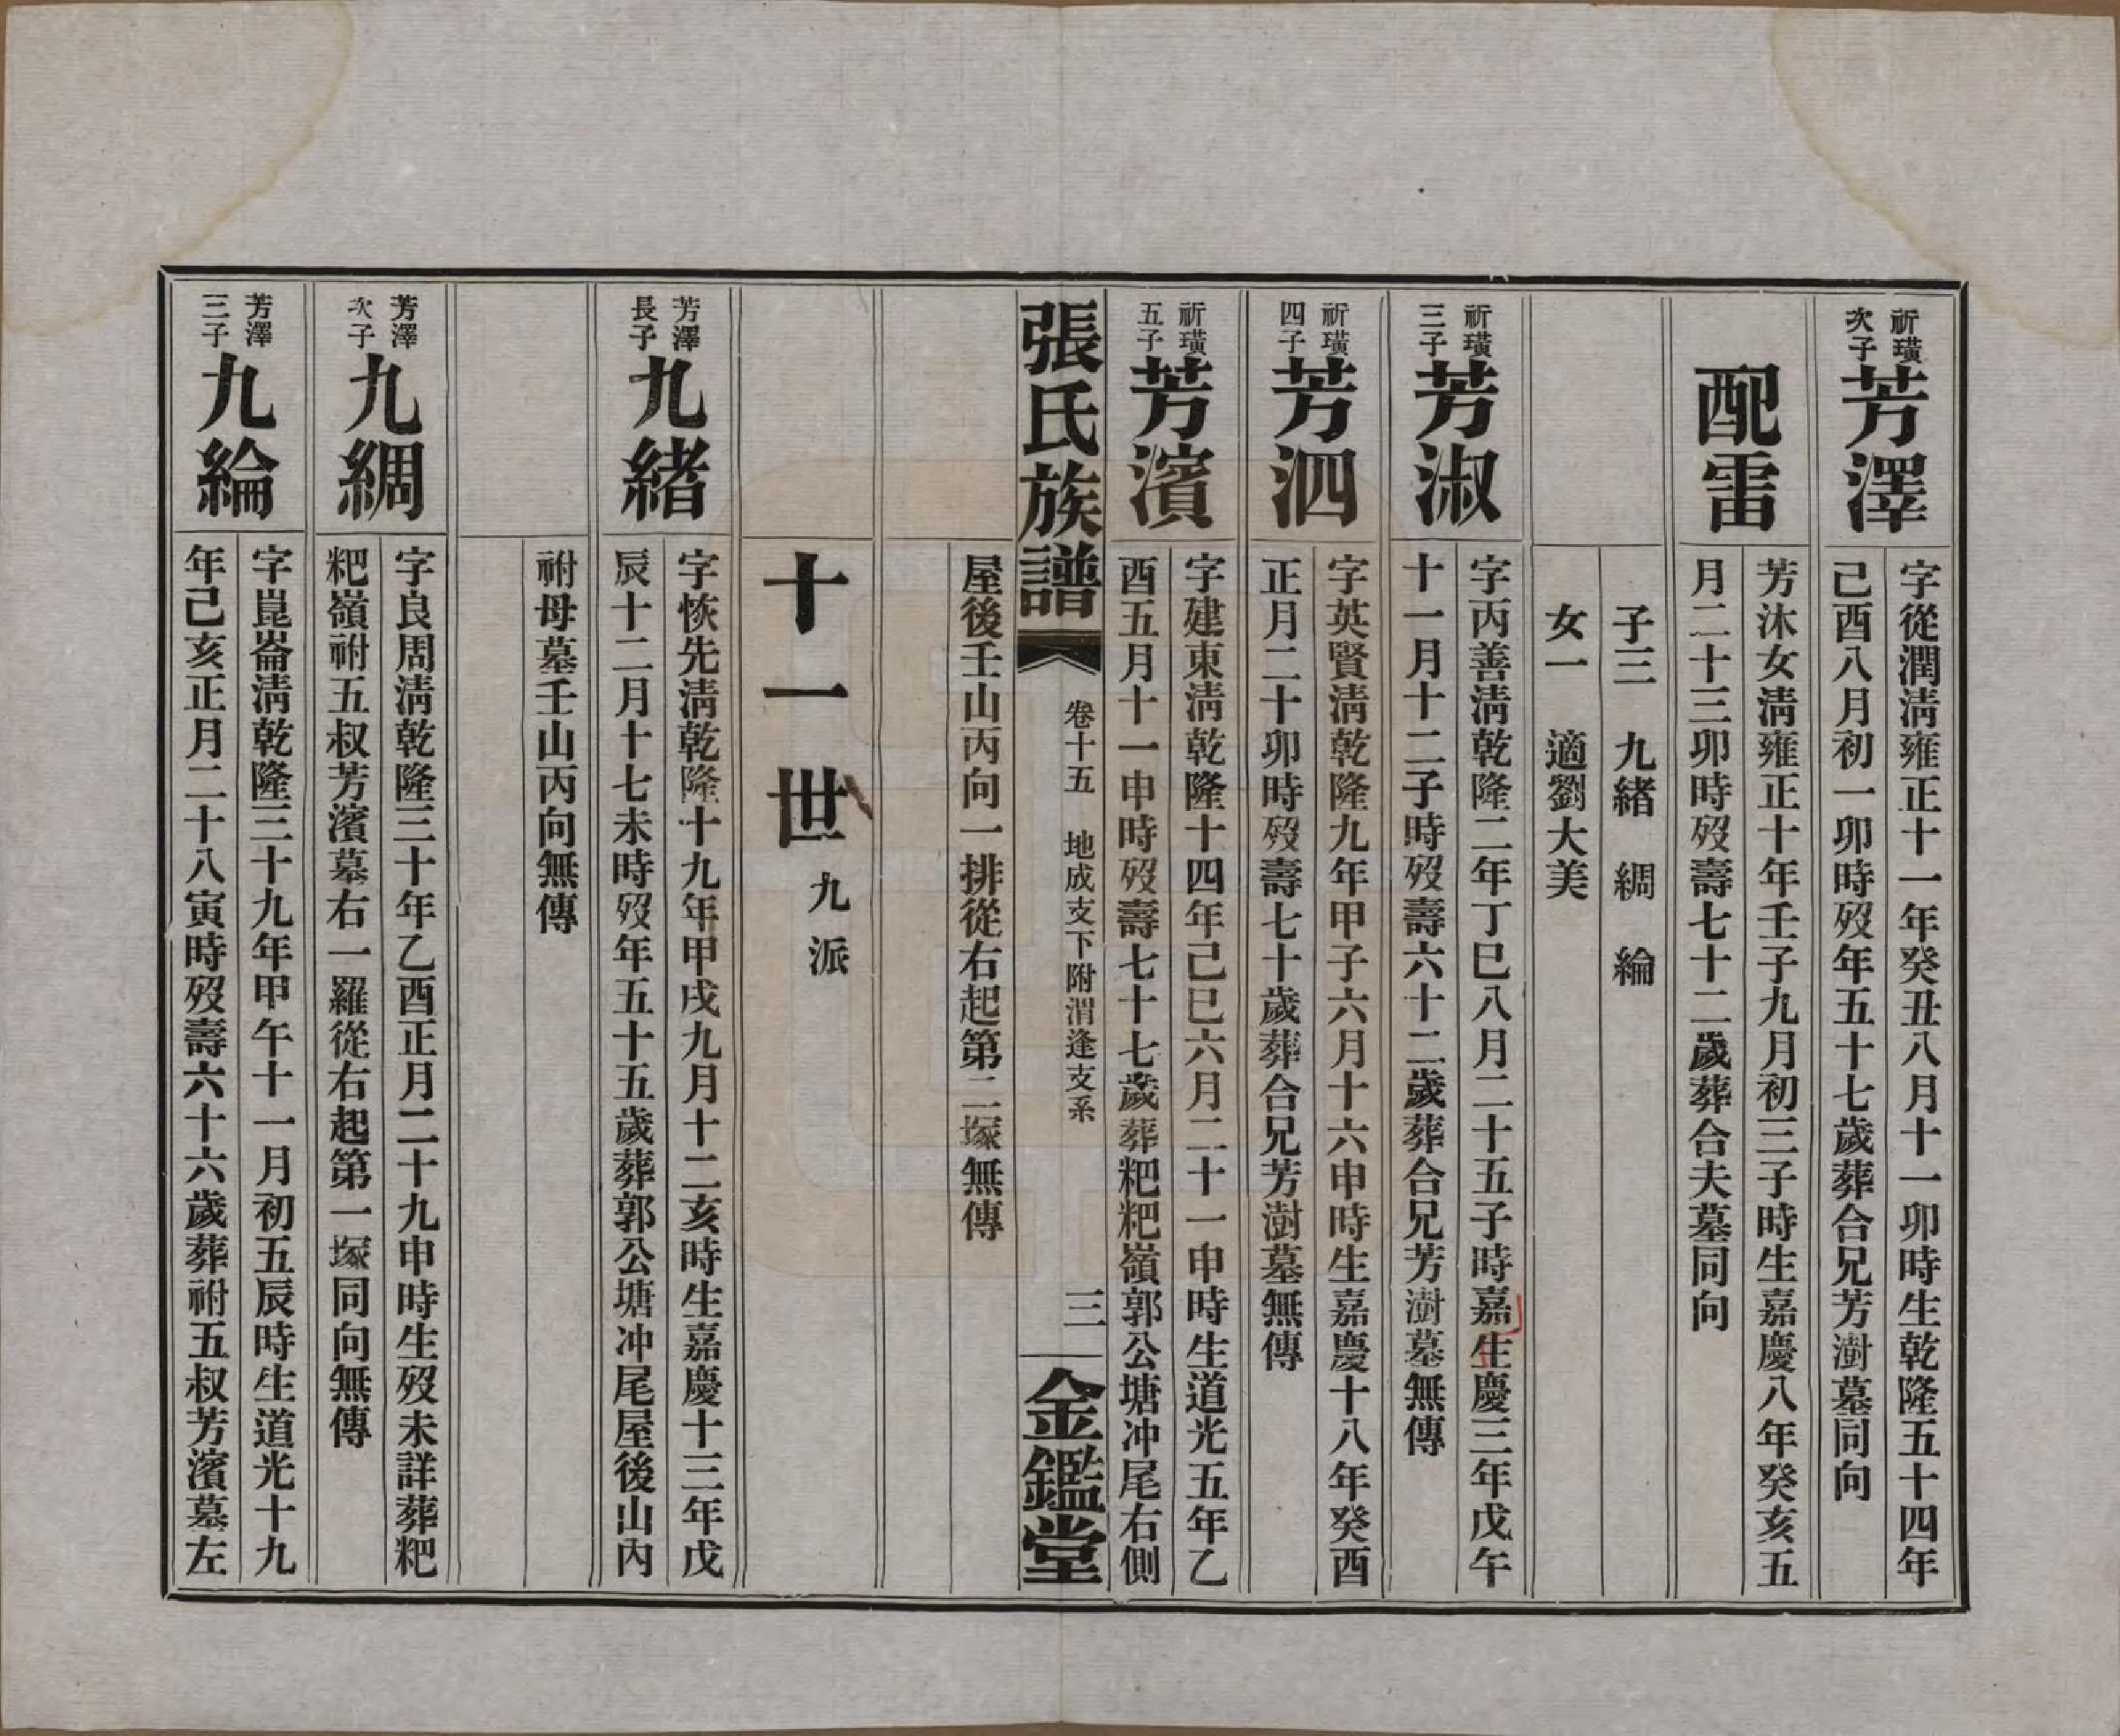 祈璜
次子
芳澤
字從潤淸雍正十一年癸丑八月十一卯時生乾隆五十四年
己酉八月初一卯時歿年五十七歲葬合兄芳澍墓同向
配雷
芳沐女淸雍正十年壬子九月初三子時生嘉慶八年癸亥五
月二十三卯時歿壽七十二歲葬合夫墓同向
子三　九緒　綢　綸
女一　適劉大美
祈璜
三子
芳淑
字丙善淸乾隆二年丁巳八月二十五子時嘉生慶三年戊午
十一月十二子時歿壽六十二歲葬合兄芳澍墓無傳
祈璜
四子
芳泗
字英賢淸乾隆九年甲子六月十六申時生嘉慶十八年癸酉
正月二十卯時歿壽七十歲葬合兄芳澍墓無傳
祈璜
五子
芳濱
字建東淸乾隆十四年己巳六月二十一申時生道光五年乙
酉五月十一申時歿壽七十七歲葬粑粑嶺郭公塘冲尾右側
張氏族譜　卷十五　地成支下附渭逢支系　三　金鑑堂
屋後壬山丙向一排從右起第二塚無傳
十一世　九派
芳澤
長子
九緒
字恢先淸乾隆十九年甲戌九月十二亥時生嘉慶十三年戊
辰十二月十七未時歿年五十五歲葬郭公塘冲尾屋後山內
祔母墓壬山丙向無傳
芳澤
次子
九綢
字良周淸乾隆三十年乙酉正月二十九申時生歿未詳葬粑
粑嶺祔五叔芳濱墓右一羅從右起第一塚同向無傳
芳澤
三子
九綸
字崑崙淸乾隆三十九年甲午十一月初五辰時生道光十九
年己亥正月二十八寅時歿壽六十六歲葬祔五叔芳濱墓左